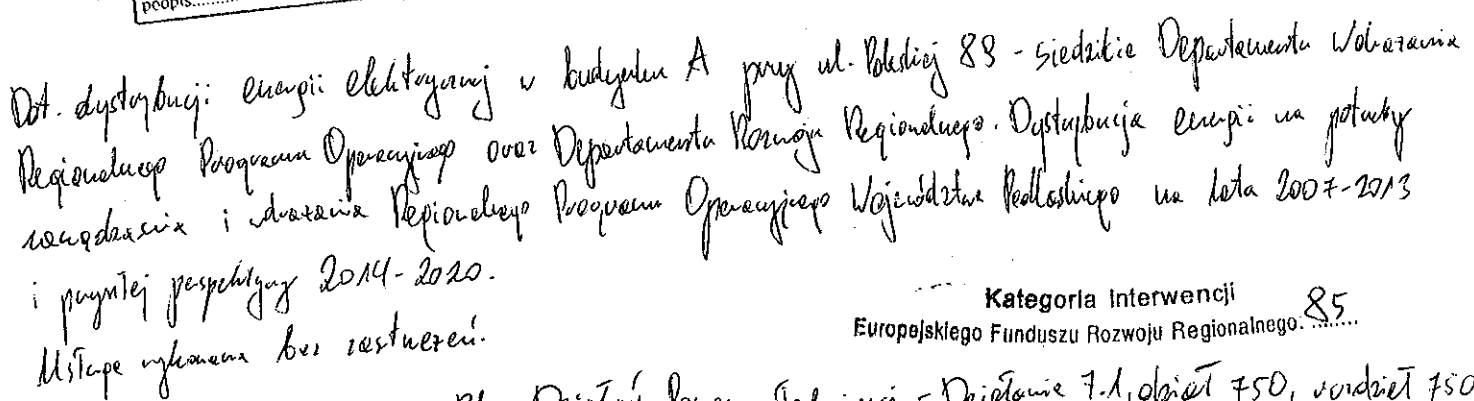 podpis..........
Dot. dystrybucji energii elektrycznej w budynku A przy ul. Poleskiej 89 - siedzibie Departamentu Wdrażania
Regionalnego Programu Operacyjnego oraz Departamentu Rozwoju Regionalnego. Dystrybucja energii na potrzeby
zarządzania i wdrażania Regionalnego Programu Operacyjnego Województwa Podlaskiego na lata 2007-2013
i przyszłej perspektywy 2014-2020.
Kategoria Interwencji
Europejskiego Funduszu Rozwoju Regionalnego: 85
Usługa wykonana bez zastrzeżeń.
Działań Pomocy Technicznej - Działanie 7.1, dział 750, rozdział 750